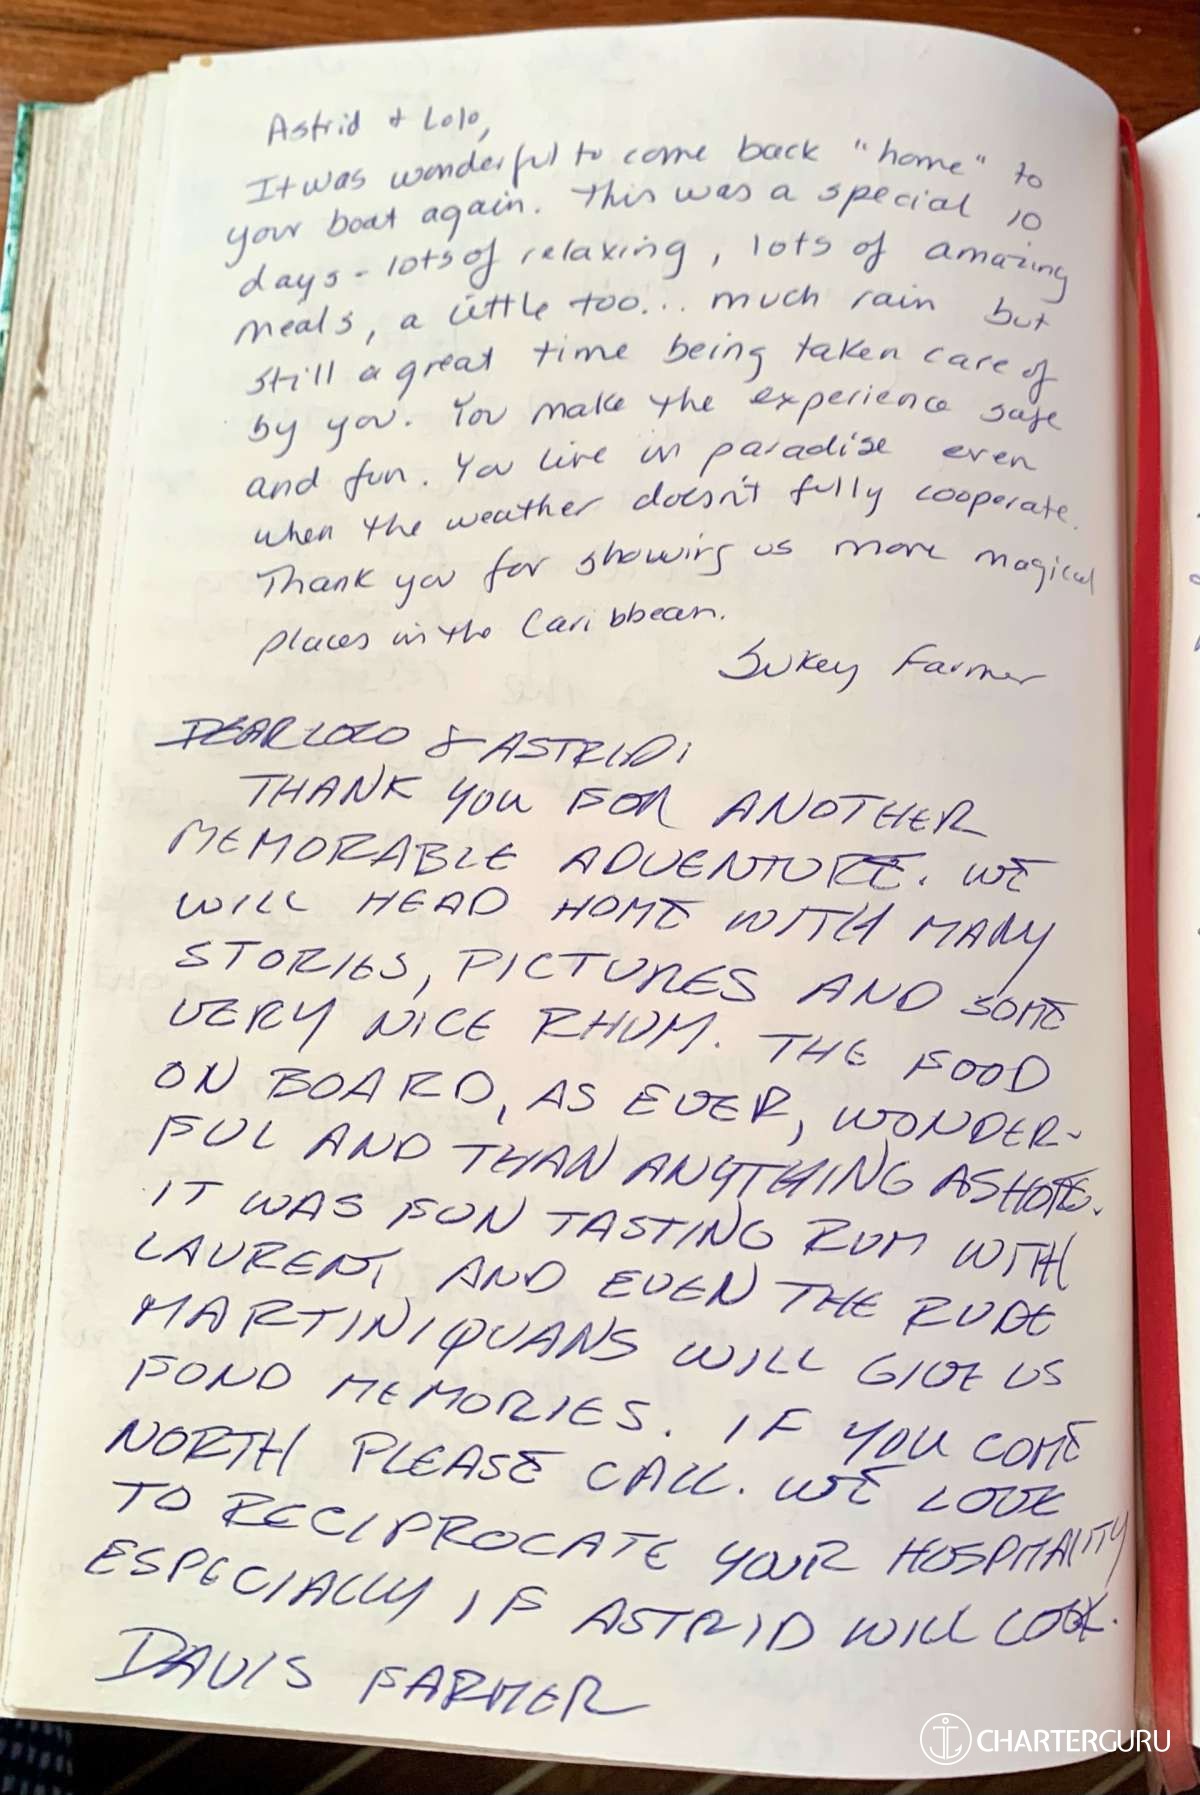 Astrid + Lolo,
It was wonderful to come back "home" to
your boat again. This was a special 10
days - lots of relaxing, lots of amazing
meals, a little too... much rain but
still a great time being taken care of
by you. You make the experience safe
and fun. You live in paradise even
when the weather doesn't fully cooperate.
Thank you for showing us more magical
places in the Caribbean.
Sukey Farmer
DEAR LOLO & ASTRID:
THANK YOU FOR ANOTHER
MEMORABLE ADVENTURE. WE
WILL HEAD HOME WITH MANY
STORIES, PICTURES AND SOME
VERY NICE RHUM. THE FOOD
ON BOARD, AS EVER, WONDER-
FUL AND THAN ANYTHING ASHORE.
IT WAS FUN TASTING RUM WITH
LAURENT, AND EVEN THE RUDE
MARTINIQUANS WILL GIVE US
FOND MEMORIES. IF YOU COME
NORTH PLEASE CALL. WE LOOK
TO RECIPROCATE YOUR HOSPITALITY
ESPECIALLY IF ASTRID WILL COOK.
DAVIS FARMER
CHARTERGURU